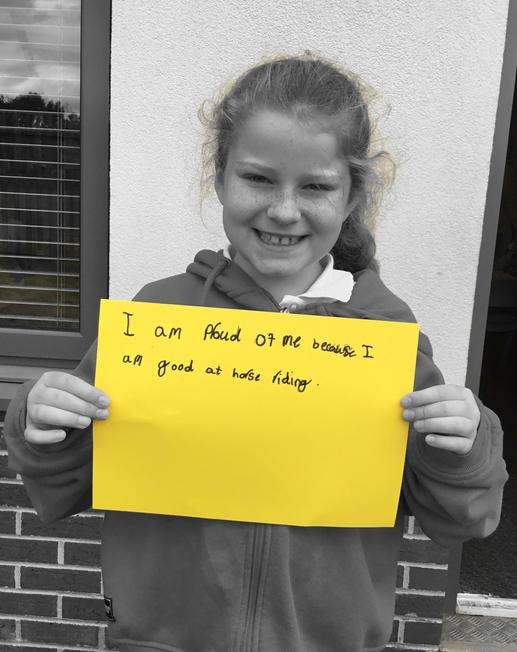 I am Proud of me because I
am good at horse riding.